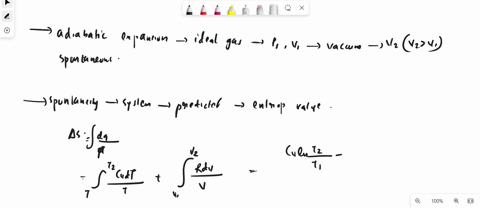 → adiabatic expansion → ideal gas → P₁, V₁ → vaccum → V₂ (V₂>V₁)
spontaneous.
→ spontaneity → system → predicted → entropy value.
ΔS = ∫ dq/T
= ∫ T₂ T CvdT/T + ∫ V₂ V₁ RdV/V = Cv ln T₂/T₁ –
100%